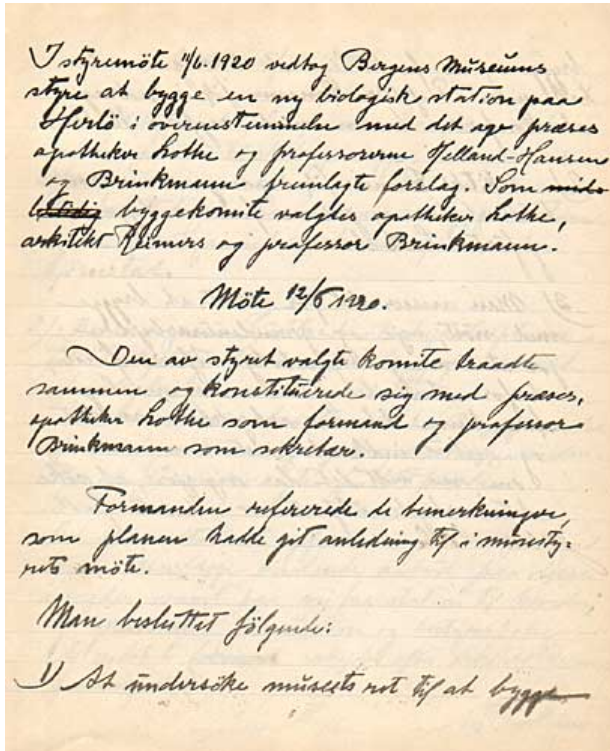 I styremöte 11/6.1920 vedtog Bergens Museums
styre at bygge en ny biologisk station paa
Herlö i overenstemmelse med det age præses
apotheker Lothe og professorerne Helland-Hansen
og Brinkmann fremlagte forslag. Som mid-
lertidig byggekomite valgtes apotheker Lothe,
arkitekt Reimers og professor Brinkmann.
Möte 12/6 1920.
Den av styret valgte komite traadte
sammen og konstituerede sig med præses,
apotheker Lothe som formand og professor
Brinkmann som sekretær.
Formanden refererede de bemerkninger,
som planen hadde git anledning til i musesty-
rets möte.
Man besluttet fölgende:
1) At undersöke museets ret til at bygge